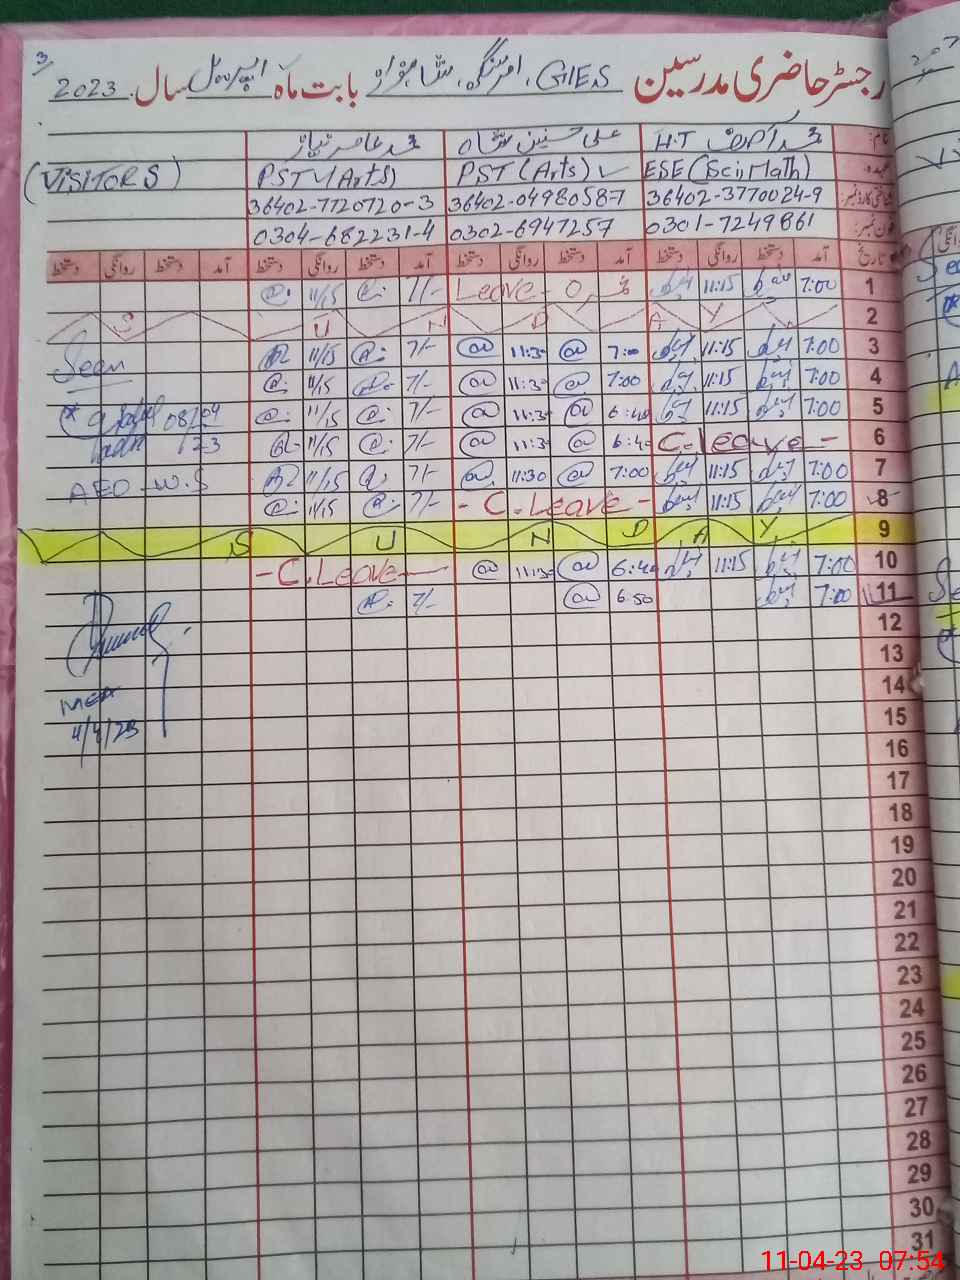 3
رجسٹر حاضری مدرسین GES، امرسنگھ، بابت ماہ اپریل سال 2023
نام: محمد آصف H.T علی حسنین شاہ محمد عامر نیاز
عہدہ: ESE (Sci, Math) PST (Arts) PST (Arts) (VISITORS)
شناختی کارڈ نمبر: 36402-3770024-9 36402-0498058-7 36402-7720720-3
فون نمبر: 0301-7249861 0302-6947257 0304-682231-4
تاریخ آمد دستخط روانگی دستخط آمد دستخط روانگی دستخط آمد دستخط روانگی دستخط آمد دستخط روانگی دستخط
1 7:00 11:15 Leave 7/- 11/15
2 S U N D A Y
3 7:00 11:15 7:00 11:30 7/- 11/15 Seen
4 7:00 11:15 7:00 11:30 7/- 11/15
5 7:00 11:15 6:40 11:30 7/- 11/15 08/04
6 C.leave - 6:40 11:30 7/- 11/15 /23
7 7:00 11:15 7:00 11:30 7/- 11/15 AEO W.S
8 7:00 11:15 - C.Leave - 7/- 11/15
9 S U N D A Y
10 7:00 11:15 6:40 11:30 - C.Leave -
11 7:00 6:50 7/-
12
13
14 MEA
15 4/4/23
16
17
18
19
20
21
22
23
24
25
26
27
28
29
30
31
11-04-23 07:54